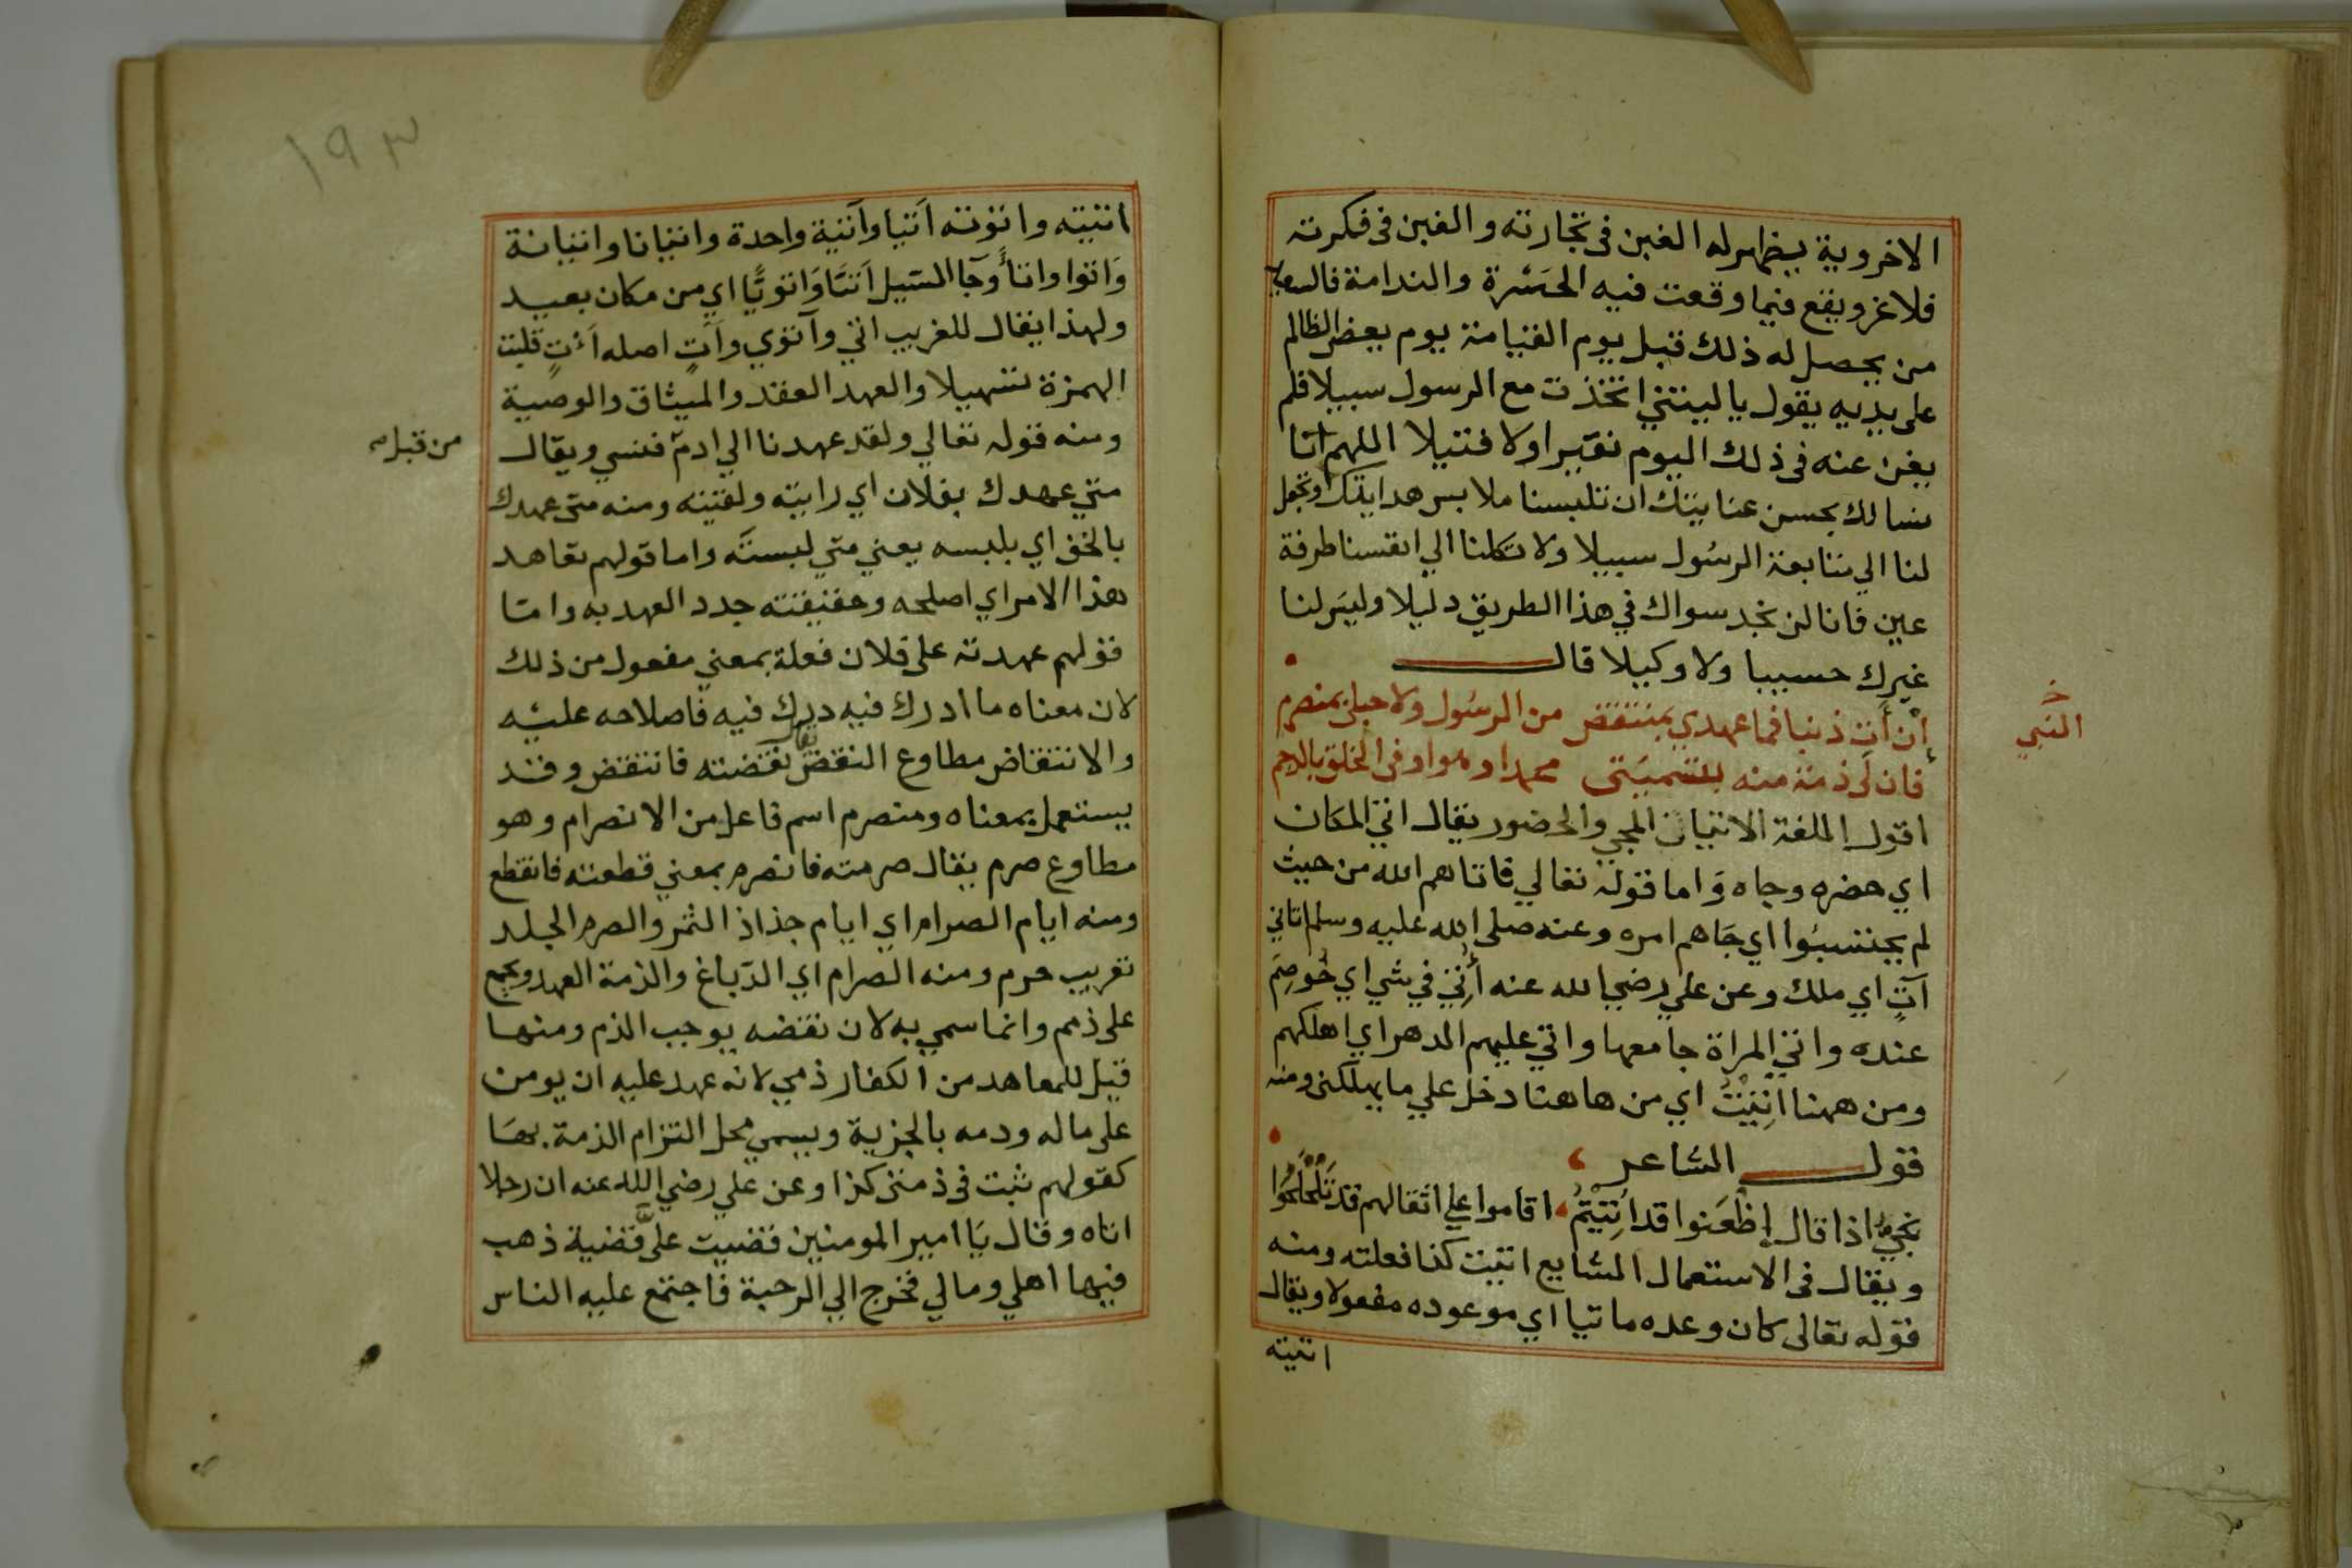 الاخروية يظهر له الغبن فى تجارته والغبن فى فكرته
فلا غرو يقع فيما وقعت فيه الحسرة والندامة فالسعيد
من يحصل له ذلك قبل يوم القيامة يوم يعض الظالم
على يديه يقول يا ليتني اتخذت مع الرسول سبيلا فلم
يغن عنه فى ذلك اليوم نقيرا ولا فتيلا اللهم انا
نسالك بحسن عنايتك ان تلبسنا ملابس هدايتك وتجعل
لنا الي متابعة الرسول سبيلا ولا تكلنا الي انفسنا طرفة
عين فانا لن نجد سواك في هذا الطريق دليلا وليس لنا
غيرك حسيبا ولا وكيلا قال
إن آت ذنبا فما عهدي بمنتقض من الرسول ولا حبلى بمنصرم
خ
النبي
فان لى ذمة منه بتسميتى محمدا وهو اوفى الخلق بالذمم
اقول اللغة الاتيان المجي والحضور يقال اتي المكان
اي حضره وجاه واما قوله تعالي فاتاهم الله من حيث
لم يحتسبوا اي جاهم امره وعنه صلى الله عليه وسلم اتاني
آت اي ملك وعن علي رضي الله عنه أُتِيَ في شي اي خُوصِم
عنده واتي المراة جامعها واتي عليهم الدهر اي اهلكهم
ومن ههنا اُتِيْتُ اي من هاهنا دخل علي ما يهلكنى ومنه
قول الشاعر
اذا قال إظعنوا قد اُتِيْتُمُ اقاموا على اثقالهم قد تَلَحْلَحُوا
ويقال فى الاستعمال الشايع اتيت كذا فعلته ومنه
قوله تعالى كان وعده ماتيا اي موعوده مفعولا ويقال
اتيته
١٩٣
اتيته واتوته اَتيا وآتية واحدة واتيانا واتيانة
ولهذا يقال للغريب اتي وآتوي وآت اصله أءْتِ قلبت
الهمزة تسهيلا والعهد العقد والميثاق والوصية
ومنه قوله تعالي ولقد عهدنا الي ادم فنسي ويقال
من قبل
متي عهدك بفلان اي رايته ولقيته ومنه متي عهدك
بالخف اي بلبسه يعني متي لبسته واما قولهم تعاهد
هذا الامر اي اصلحه وحقيقته جدد العهد به واما
قولهم عهدته على فلان فعلة بمعني مفعول من ذلك
لان معناه ما ادرك فيه درك فيه فاصلاحه عليه
والانتقاض مطاوع النقض يقال نقضته فانتقض وقد
يستعمل بمعناه ومنصرم اسم فاعل من الانصرام وهو
مطاوع صرم يقال صرمته فانصرم بمعني قطعته فانقطع
ومنه ايام الصرام اي ايام جذاذ الثمر والصرم الجلد
تعريب حرم ومنه الصرام اي الدباغ والذمة العهد ويجمع
على ذمم وانما سمي به لان نقضه يوجب الذم ومنها
قيل للمعاهد من الكفار ذمي لانه عهد عليه ان يومن
على ماله ودمه بالجزية ويسمي محل التزام الذمة بها
كقولهم ثبت فى ذمتى كذا وعن علي رضي الله عنه ان رجلا
اتاه وقال يا امير المومنين قضيت علىَّ قضية ذهب
فيها اهلي ومالي فخرج الي الرحبة فاجتمع عليه الناس